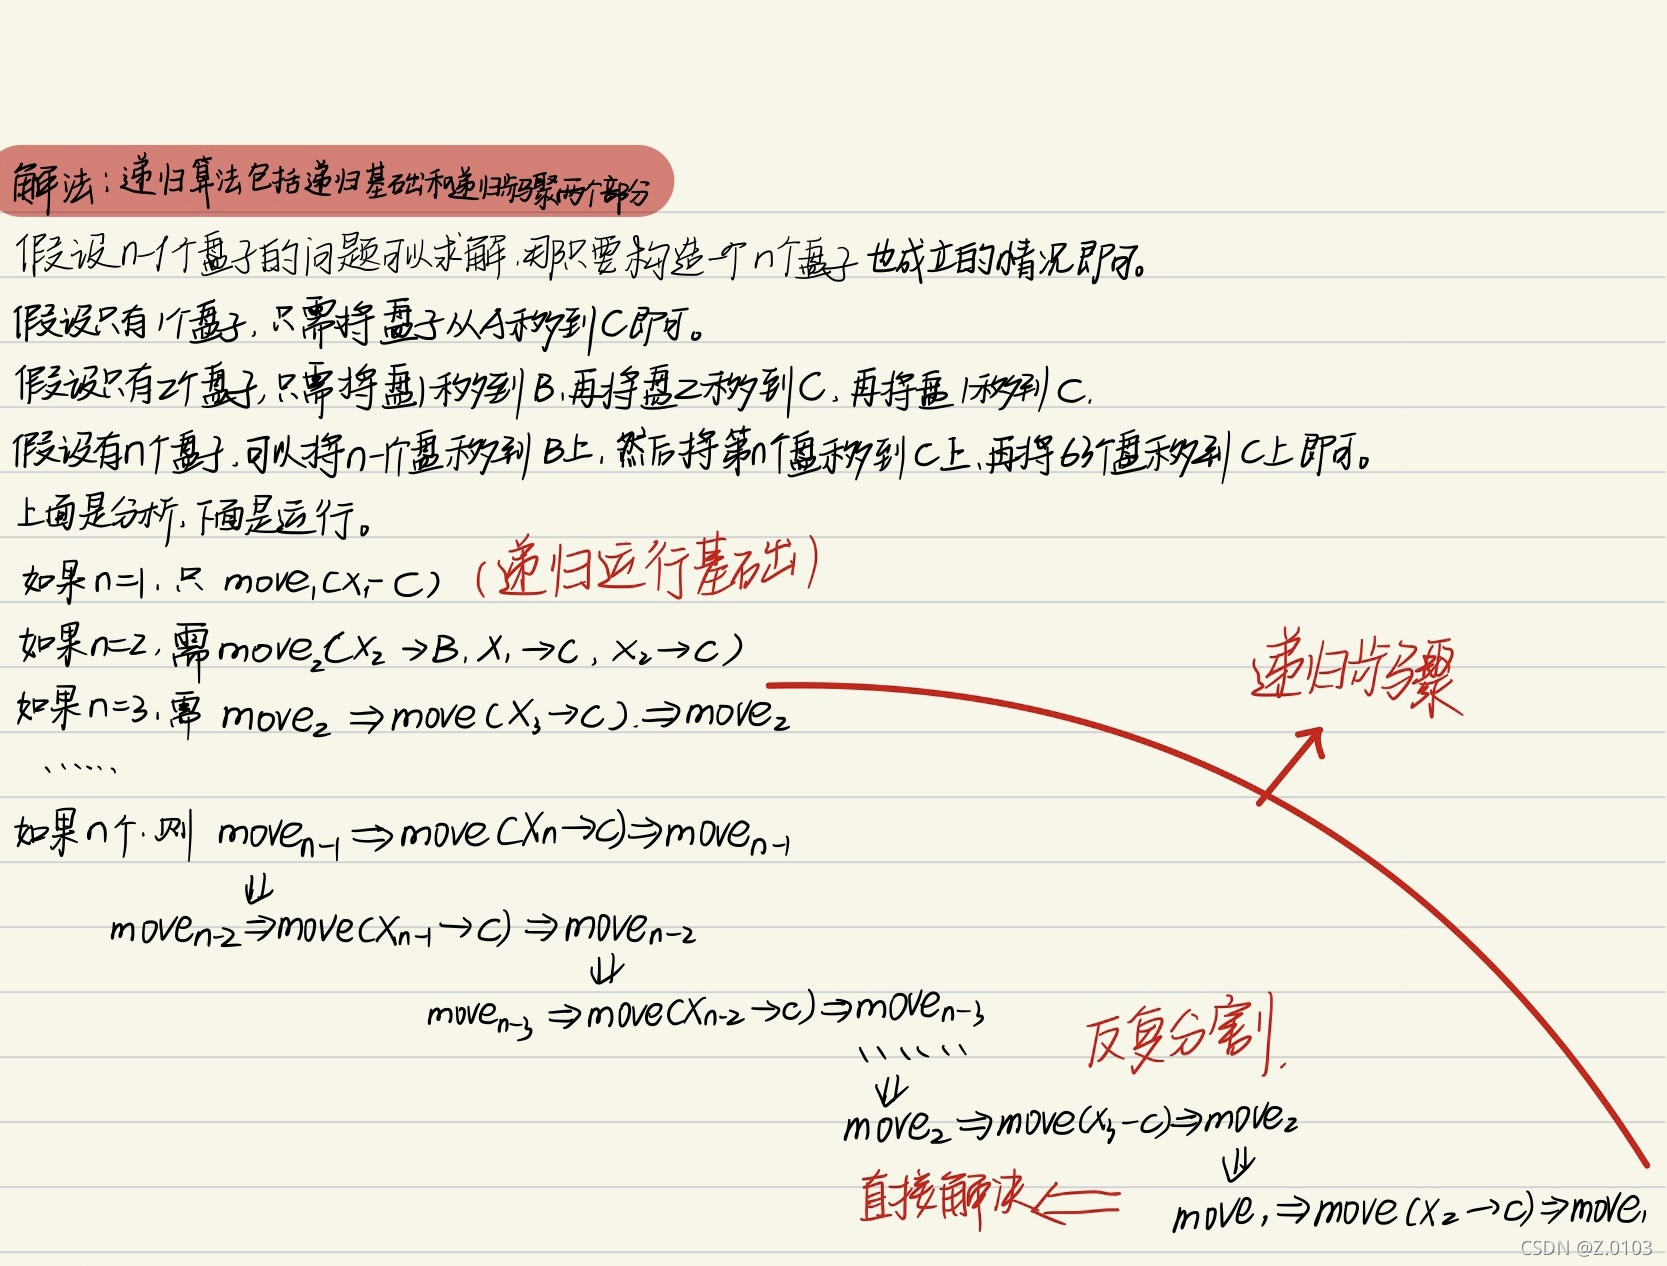 解法：递归算法包括递归基础和递归步骤两个部分
假设n-1个盘子的问题可以求解，那只要构造一个n个盘子也成立的情况即可。
假设只有1个盘子，只需将盘子从A移到C即可。
假设只有2个盘子，只需将盘1移到B，再将盘2移到C，再将盘1移到C.
假设有n个盘子，可以将n-1个盘移到B上，然后将第n个盘移到C上，再将63个盘移到C上即可。
上面是分析，下面是运行。
如果n=1，只 move₁(X₁-C) (递归运行基础)
如果n=2，需move₂(X₂→B, X₁→C, X₂→C)
递归步骤
如果n=3，需 move₂ ⇒ move(X₃→C). ⇒ move₂
......
如果n个，则 moveₙ₋₁ ⇒ move(Xₙ→C) ⇒ moveₙ₋₁
⇓
moveₙ₋₂ ⇒ move(Xₙ₋₁→C) ⇒ moveₙ₋₂
⇓
moveₙ₋₃ ⇒ move(Xₙ₋₂→C) ⇒ moveₙ₋₃
反复分割.
......
⇓
move₂ ⇒ move(X₃-C) ⇒ move₂
⇓
直接解决 ⇐ move₁ ⇒ move(X₂→C) ⇒ move₁
CSDN @Z.0103